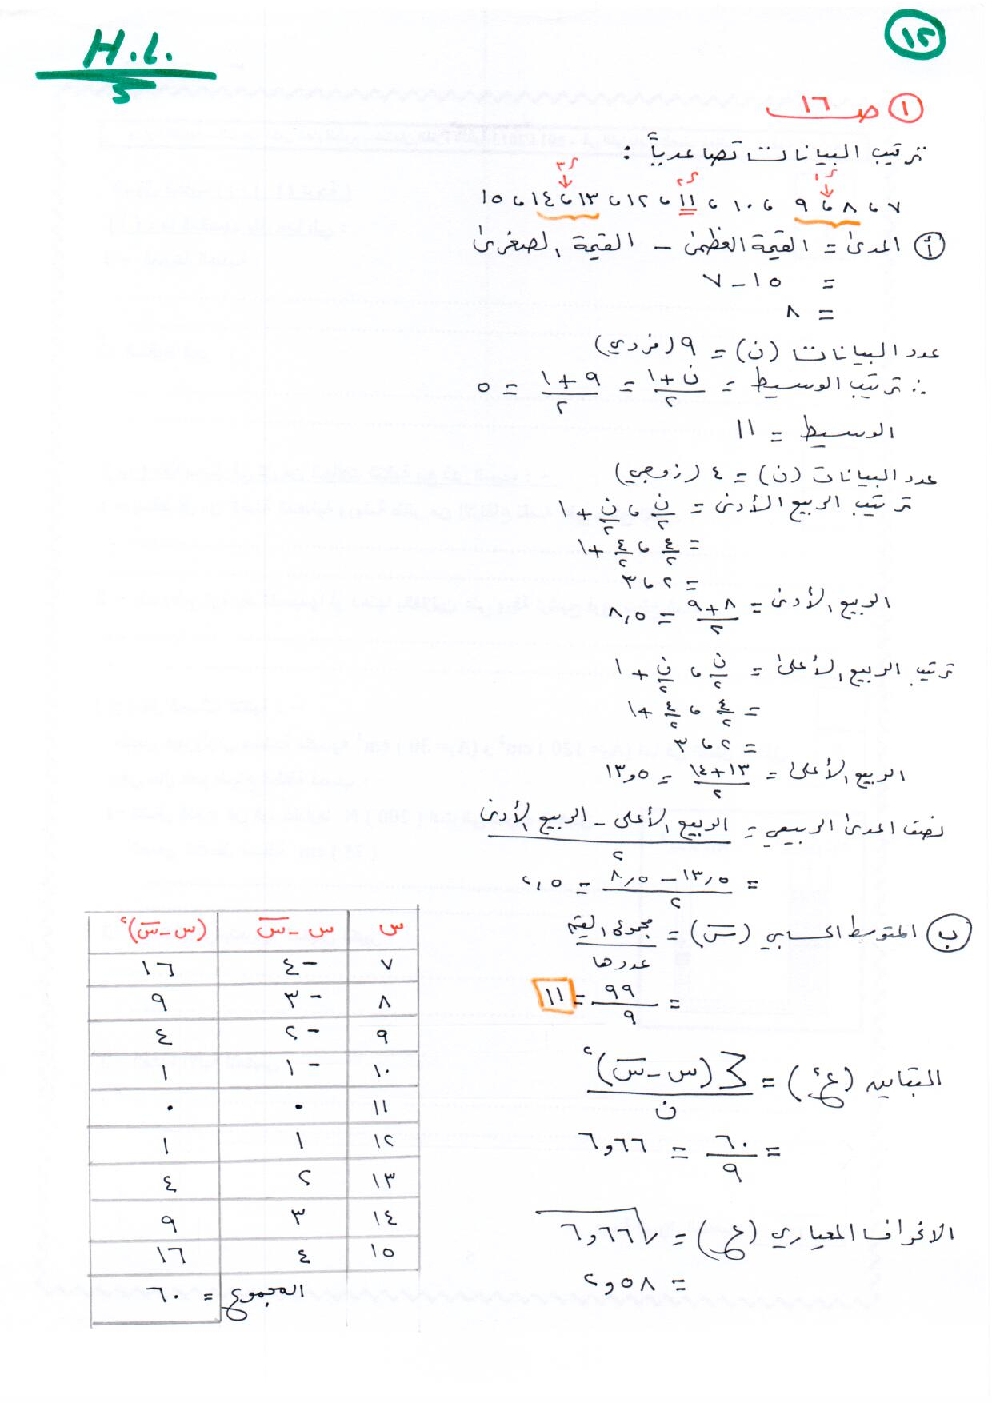 H.L.
١٢
١ ص ١٦
ترتيب البيانات تصاعدياً :
ر١ ر٢ ر٣
٧ ، ٨ ، ٩ ، ١٠ ، ١١ ، ١٢ ، ١٣ ، ١٤ ، ١٥
أ المدى = القيمة العظمى - القيمة الصغرى
= ١٥ - ٧
= ٨
عدد البيانات (ن) = ٩ (فردي)
∴ ترتيب الوسيط = (ن + ١)/٢ = (٩ + ١)/٢ = ٥
الوسيط = ١١
عدد البيانات (ن) = ٤ (زوجي)
ترتيب الربيع الأدنى = ن/٢ ، ن/٢ + ١
= ٤/٢ ، ٤/٢ + ١
= ٢ ، ٣
الربيع الأدنى = (٨ + ٩)/٢ = ٨,٥
ترتيب الربيع الأعلى = ن/٢ ، ن/٢ + ١
= ٤/٢ ، ٤/٢ + ١
= ٢ ، ٣
الربيع الأعلى = (١٣ + ١٤)/٢ = ١٣,٥
نصف المدى الربيعي = (الربيع الأعلى - الربيع الأدنى)/٢
= (١٣,٥ - ٨,٥)/٢ = ٢,٥
ب المتوسط الحسابي (س̄) = مجموع القيم/عددها
= ٩٩/٩ = ١١
التباين (ع²) = ∑(س - س̄)²/ن
= ٦٠/٩ = ٦,٦٦
الانحراف المعياري (ع) = √٦,٦٦
= ٢,٥٨
س س - س̄ (س - س̄)²
٧ -٤ ١٦
٨ -٣ ٩
٩ -٢ ٤
١٠ -١ ١
١١ ٠ ٠
١٢ ١ ١
١٣ ٢ ٤
١٤ ٣ ٩
١٥ ٤ ١٦
المجموع = ٦٠